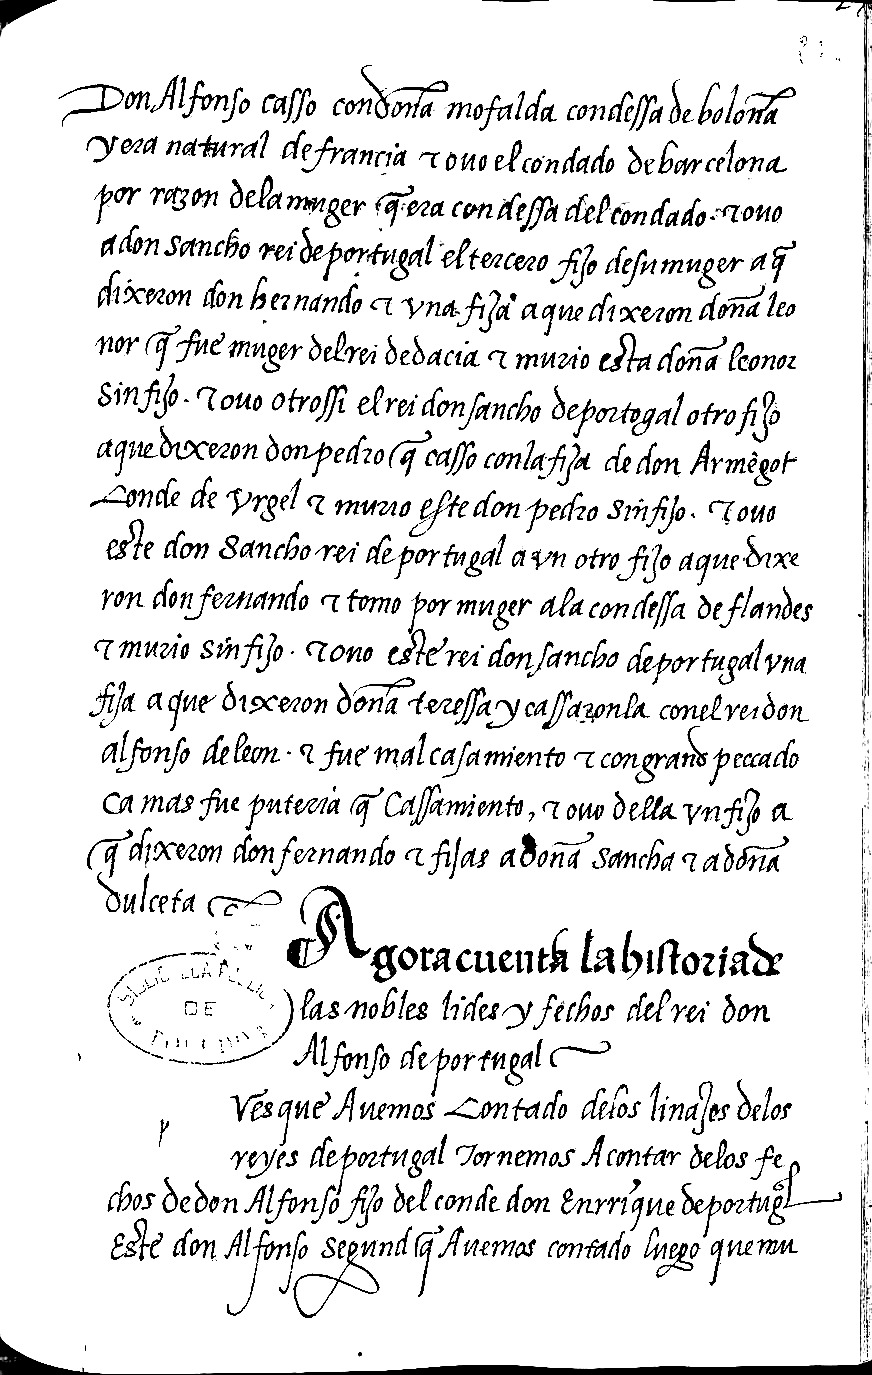 Don Alfonso casso con doña mofalda condessa de boloña
y era natural de francia τ ouo el condado de barcelona
por razon dela muger q̃ era condessa del condado. τ ouo
a don sancho rei de portugal el tercero fijo de su muger a q̃
dixeron don hernando τ vna fija a que dixeron doña leo
nor q̃ fue muger del rei de dacia τ murio esta doña leonor
sin fijo. τ ouo otrossi el rei don sancho de portogal otro fijo
a que dixeron don pedro q̃ casso con la fija de don Armẽgot
Conde de vrgel τ murio este don pedro sin fijo. τ ouo
este don Sancho rei de portugal a vn otro fijo a que dixe
ron don fernando τ tomo por muger a la condessa de flandes
τ murio sin fijo. τ ouo este rei don sancho de portugal vna
fija a que dixeron doña teressa y cassaronla con el rei don
alfonso de leon. τ fue mal casamiento τ con grand peccado
Ca mas fue puteria q̃ Cassamiento, τ ouo della vn fijo a
q̃ dixeron don fernando τ fijas a doña sancha τ a doña
dulceta
¶ Agora cuenta la historia de
las nobles lides y fechos del rei don
Alfonso de portugal
Ves que Auemos Contado delos linajes delos
reyes de portugal Tornemos A contar delos fe
chos de don Alfonso fijo del conde don Enrrique de portugl
Este don Alfonso segund q̃ Auemos contado luego que mu
DE